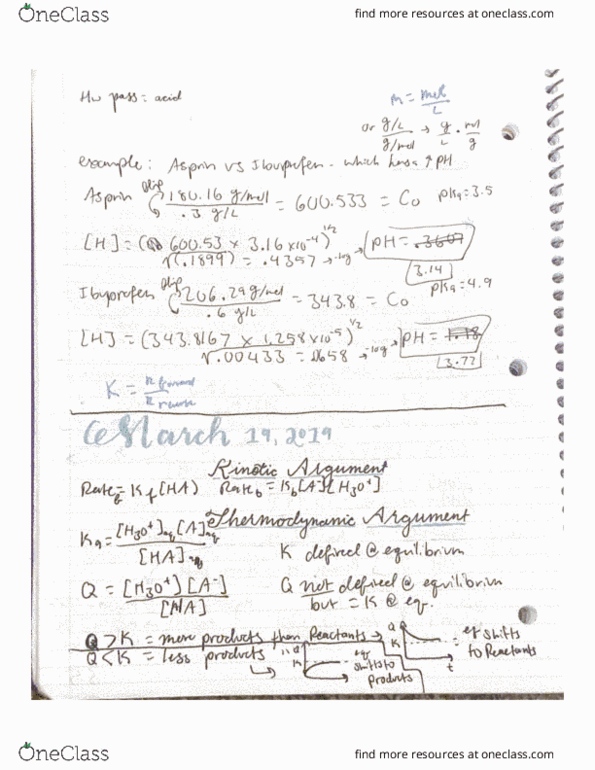 OneClass
find more resources at oneclass.com
Hw pass: acid
M = mol/L
or g/L / g/mol → g/L · mol/g
example: Asprin vs Ibuprofen - which has a ↑ pH
Asprin flip 180.16 g/mol / .3 g/L = 600.533 = Co pKa = 3.5
[H] = ( 600.53 × 3.16 × 10⁻⁴)^1/2 → pH = .3607
√(.1899) = .4357 → -log
3.14
Ibuprofen flip 206.29 g/mol / .6 g/L = 343.8 = Co pKa = 4.9
[H] = (343.8167 × 1.258 × 10⁻⁵)^1/2 → pH = 1.18
√.00433 = .0658 → -log
3.77
K = K forward / K reverse
March 19, 2019
Kinetic Argument
Rate f = Kf [HA] Rate b = Kb [A⁻][H₃O⁺]
Thermodynamic Argument
Ka = [H₃O⁺]aq [A⁻]aq / [HA]aq
K defined @ equilibrium
Q = [H₃O⁺][A⁻] / [HA]
Q not defined @ equilibrium
but = K @ eq.
Q > K = more products than Reactants → Q K t eq shifts to Reactants
Q < K = less products " Q K eq shifts to products
OneClass
find more resources at oneclass.com